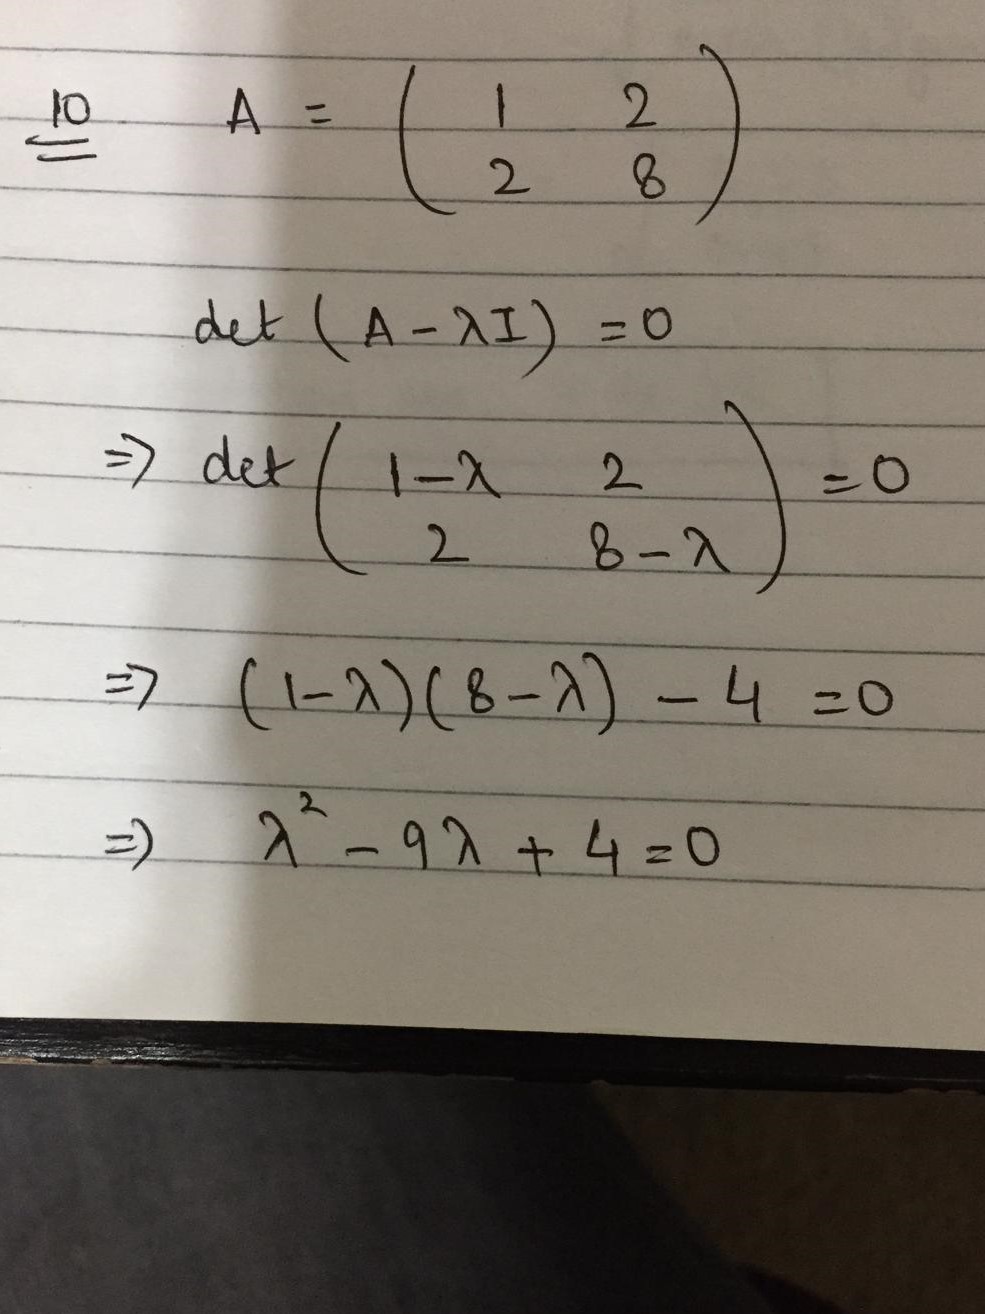 10 A = ( 1 2
2 8 )
det (A - λI) = 0
=> det ( 1-λ 2
2 8-λ ) = 0
=> (1-λ)(8-λ) - 4 = 0
=> λ² - 9λ + 4 = 0